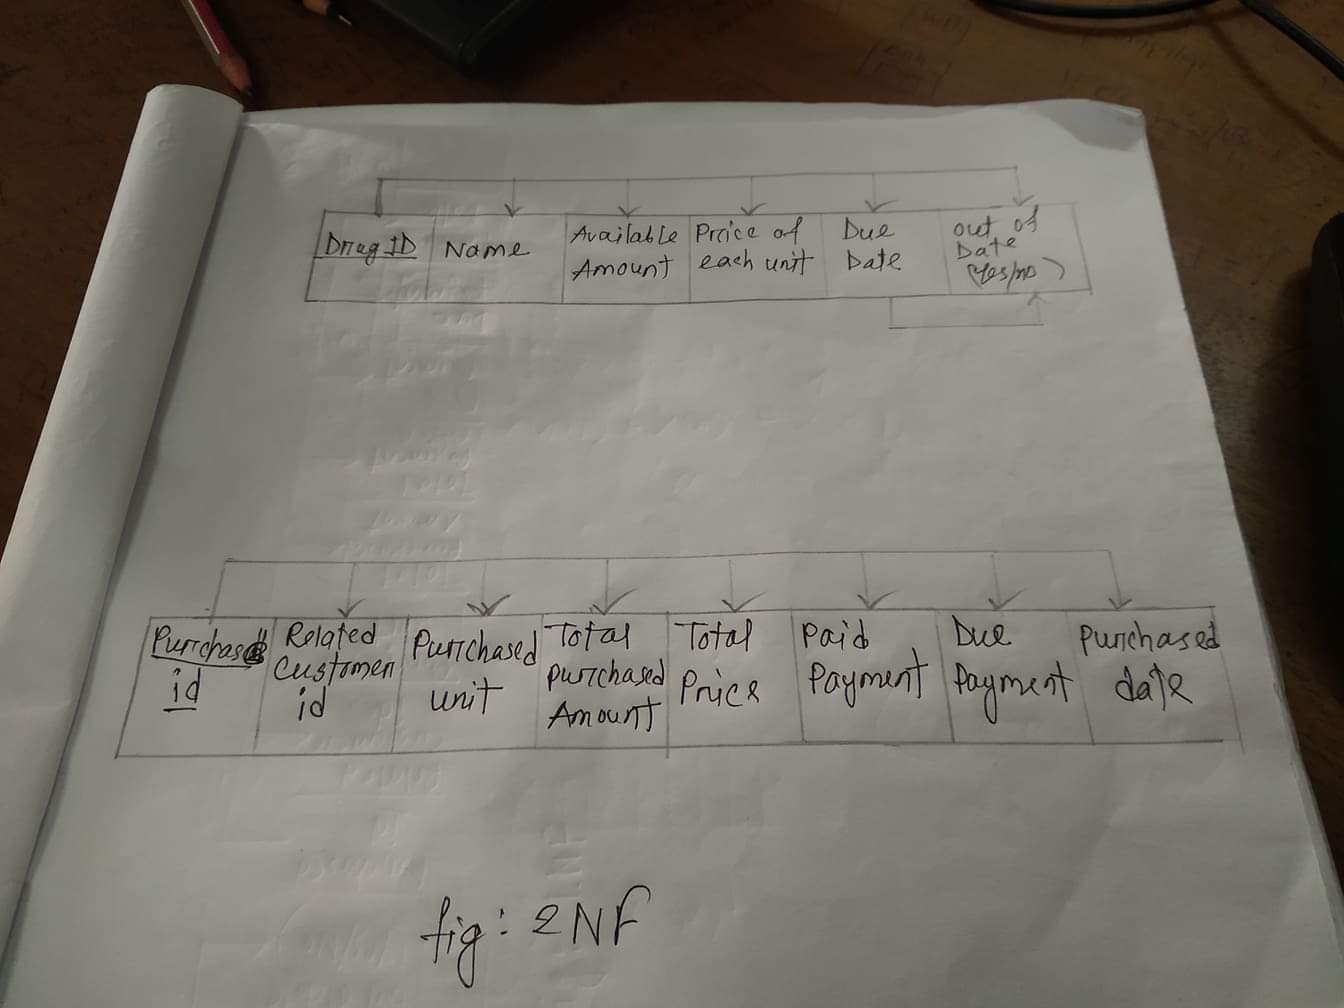 Drug ID
Name
Available
Amount
Price of
each unit
Due
Date
out of
Date
(Yes/no)
Purchased
id
Related
Customer
id
Purchased
unit
Total
purchased
Amount
Total
Price
Paid
Payment
Due
Payment
Purchased
date
fig: 2NF